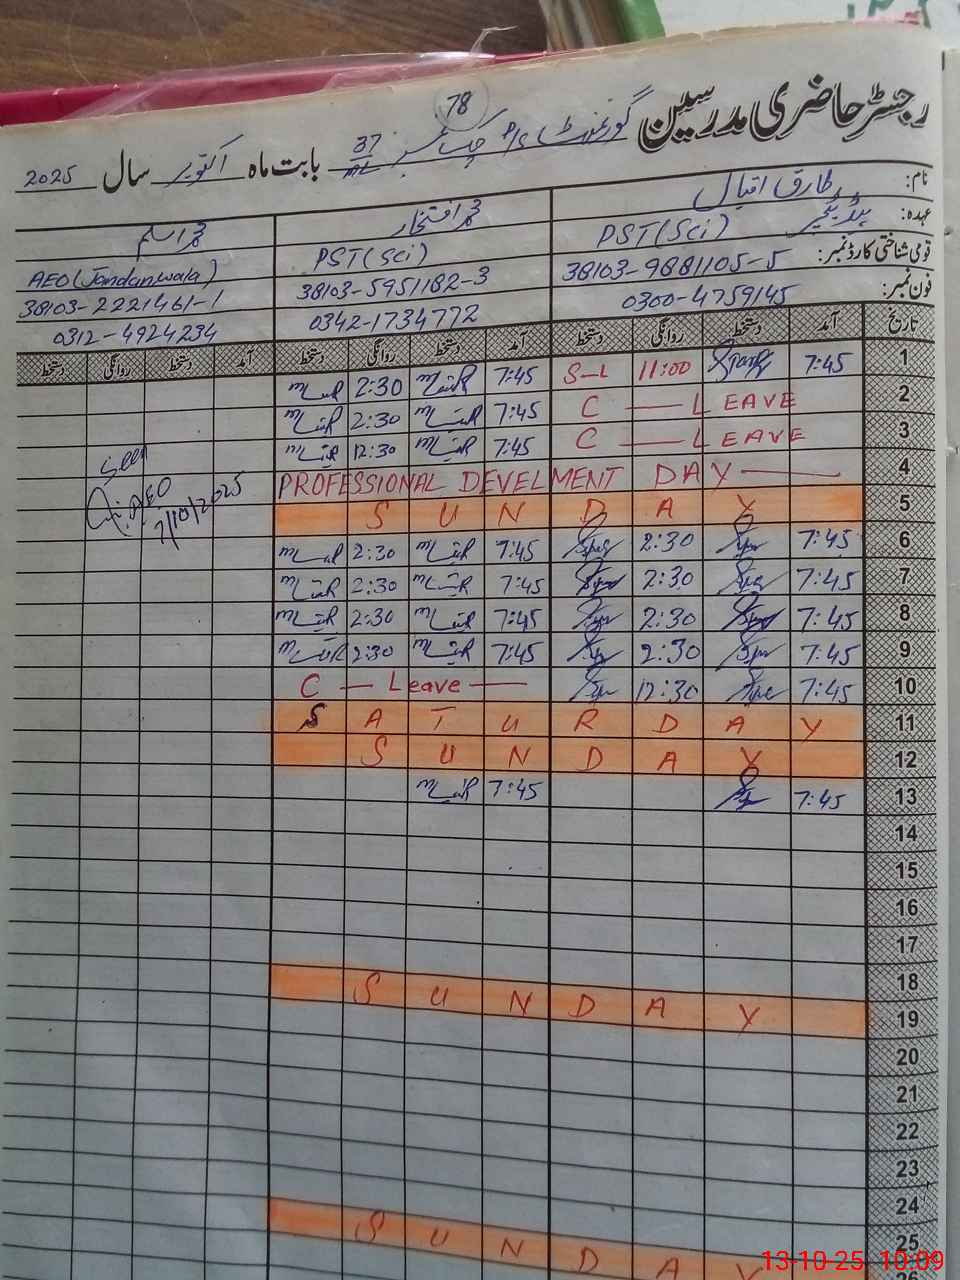 رجسٹر حاضری مدرسین
78
گورنمنٹ P/S چک نمبر 37/ML بابت ماہ اکتوبر سال 2025
نام: طارق اقبال محمد افتخار محمد اسلم
عہدہ: ہیڈ ٹیچر PST(Sci) PST(Sci) AEO(Jandanwala)
قومی شناختی کارڈ نمبر: 38103-9881105-5 38103-5951182-3 38103-2221461-1
فون نمبر: 0300-4759145 0342-1734772 0312-4924234
تاریخ آمد دستخط روانگی دستخط آمد دستخط روانگی دستخط آمد دستخط روانگی دستخط
1 7:45 11:00 S-L 7:45 2:30
2 C — LEAVE 7:45 2:30
3 C — LEAVE 7:45 12:30
4 PROFESSIONAL DEVELMENT DAY
Seen
AEO
7/10/2025
5 SUNDAY
6 7:45 2:30 7:45 2:30
7 7:45 2:30 7:45 2:30
8 7:45 2:30 7:45 2:30
9 7:45 2:30 7:45 2:30
10 7:45 12:30 C — Leave —
11 SATURDAY
12 SUNDAY
13 7:45 7:45
14
15
16
17
18
19 SUNDAY
20
21
22
23
24
25
26 SUNDAY
13-10-25 10:09